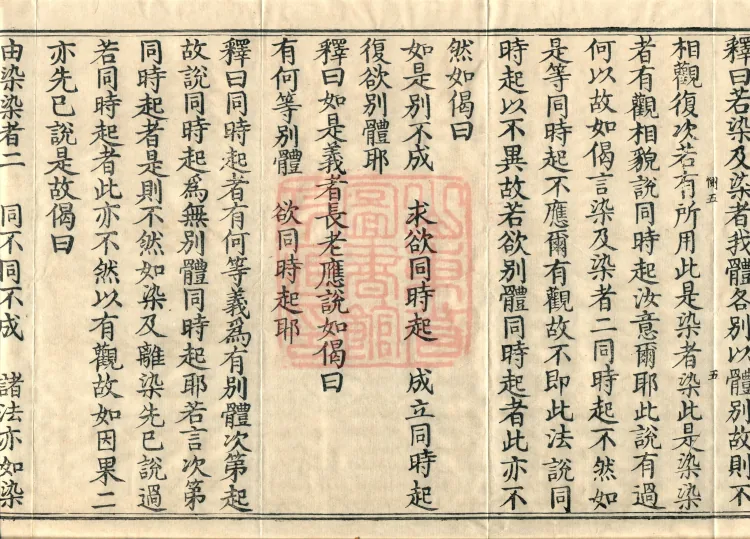 釋曰若染及染者我體各別以體別故則不
相觀復次若有所用此是染者染此是染染
惻五
五
者有觀相貌說同時起汝意爾耶此說有過
何以故如偈言染及染者二同時起不然如
是等同時起不應爾有觀故不即此法說同
時起以不異故若欲別體同時起者此亦不
然如偈曰
如是別不成　求欲同時起　成立同時起
復欲別體耶
釋曰如是義者長老應說如偈曰
有何等別體　欲同時起耶
釋曰同時起者有何等義為有別體次第起
故說同時起為無別體同時起耶若言次第
同時起者是則不然如染及離染先已說過
若同時起者此亦不然以有觀故如因果二
亦先已說是故偈曰
由染染者二　同不同不成　諸法亦如染